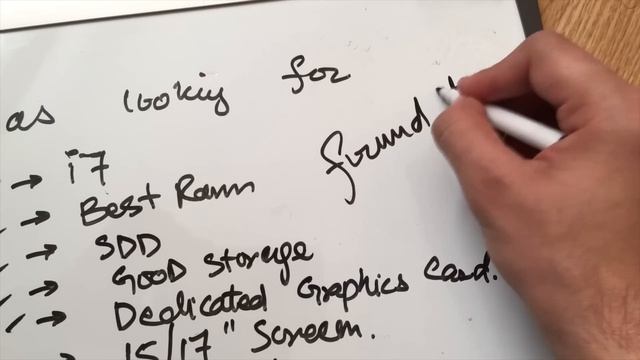 as looking for
found
→ i7
→ Best Ram
→ SDD
→ GOOD Storage
→ Dedicated Graphics Card.
15/17" Screem.